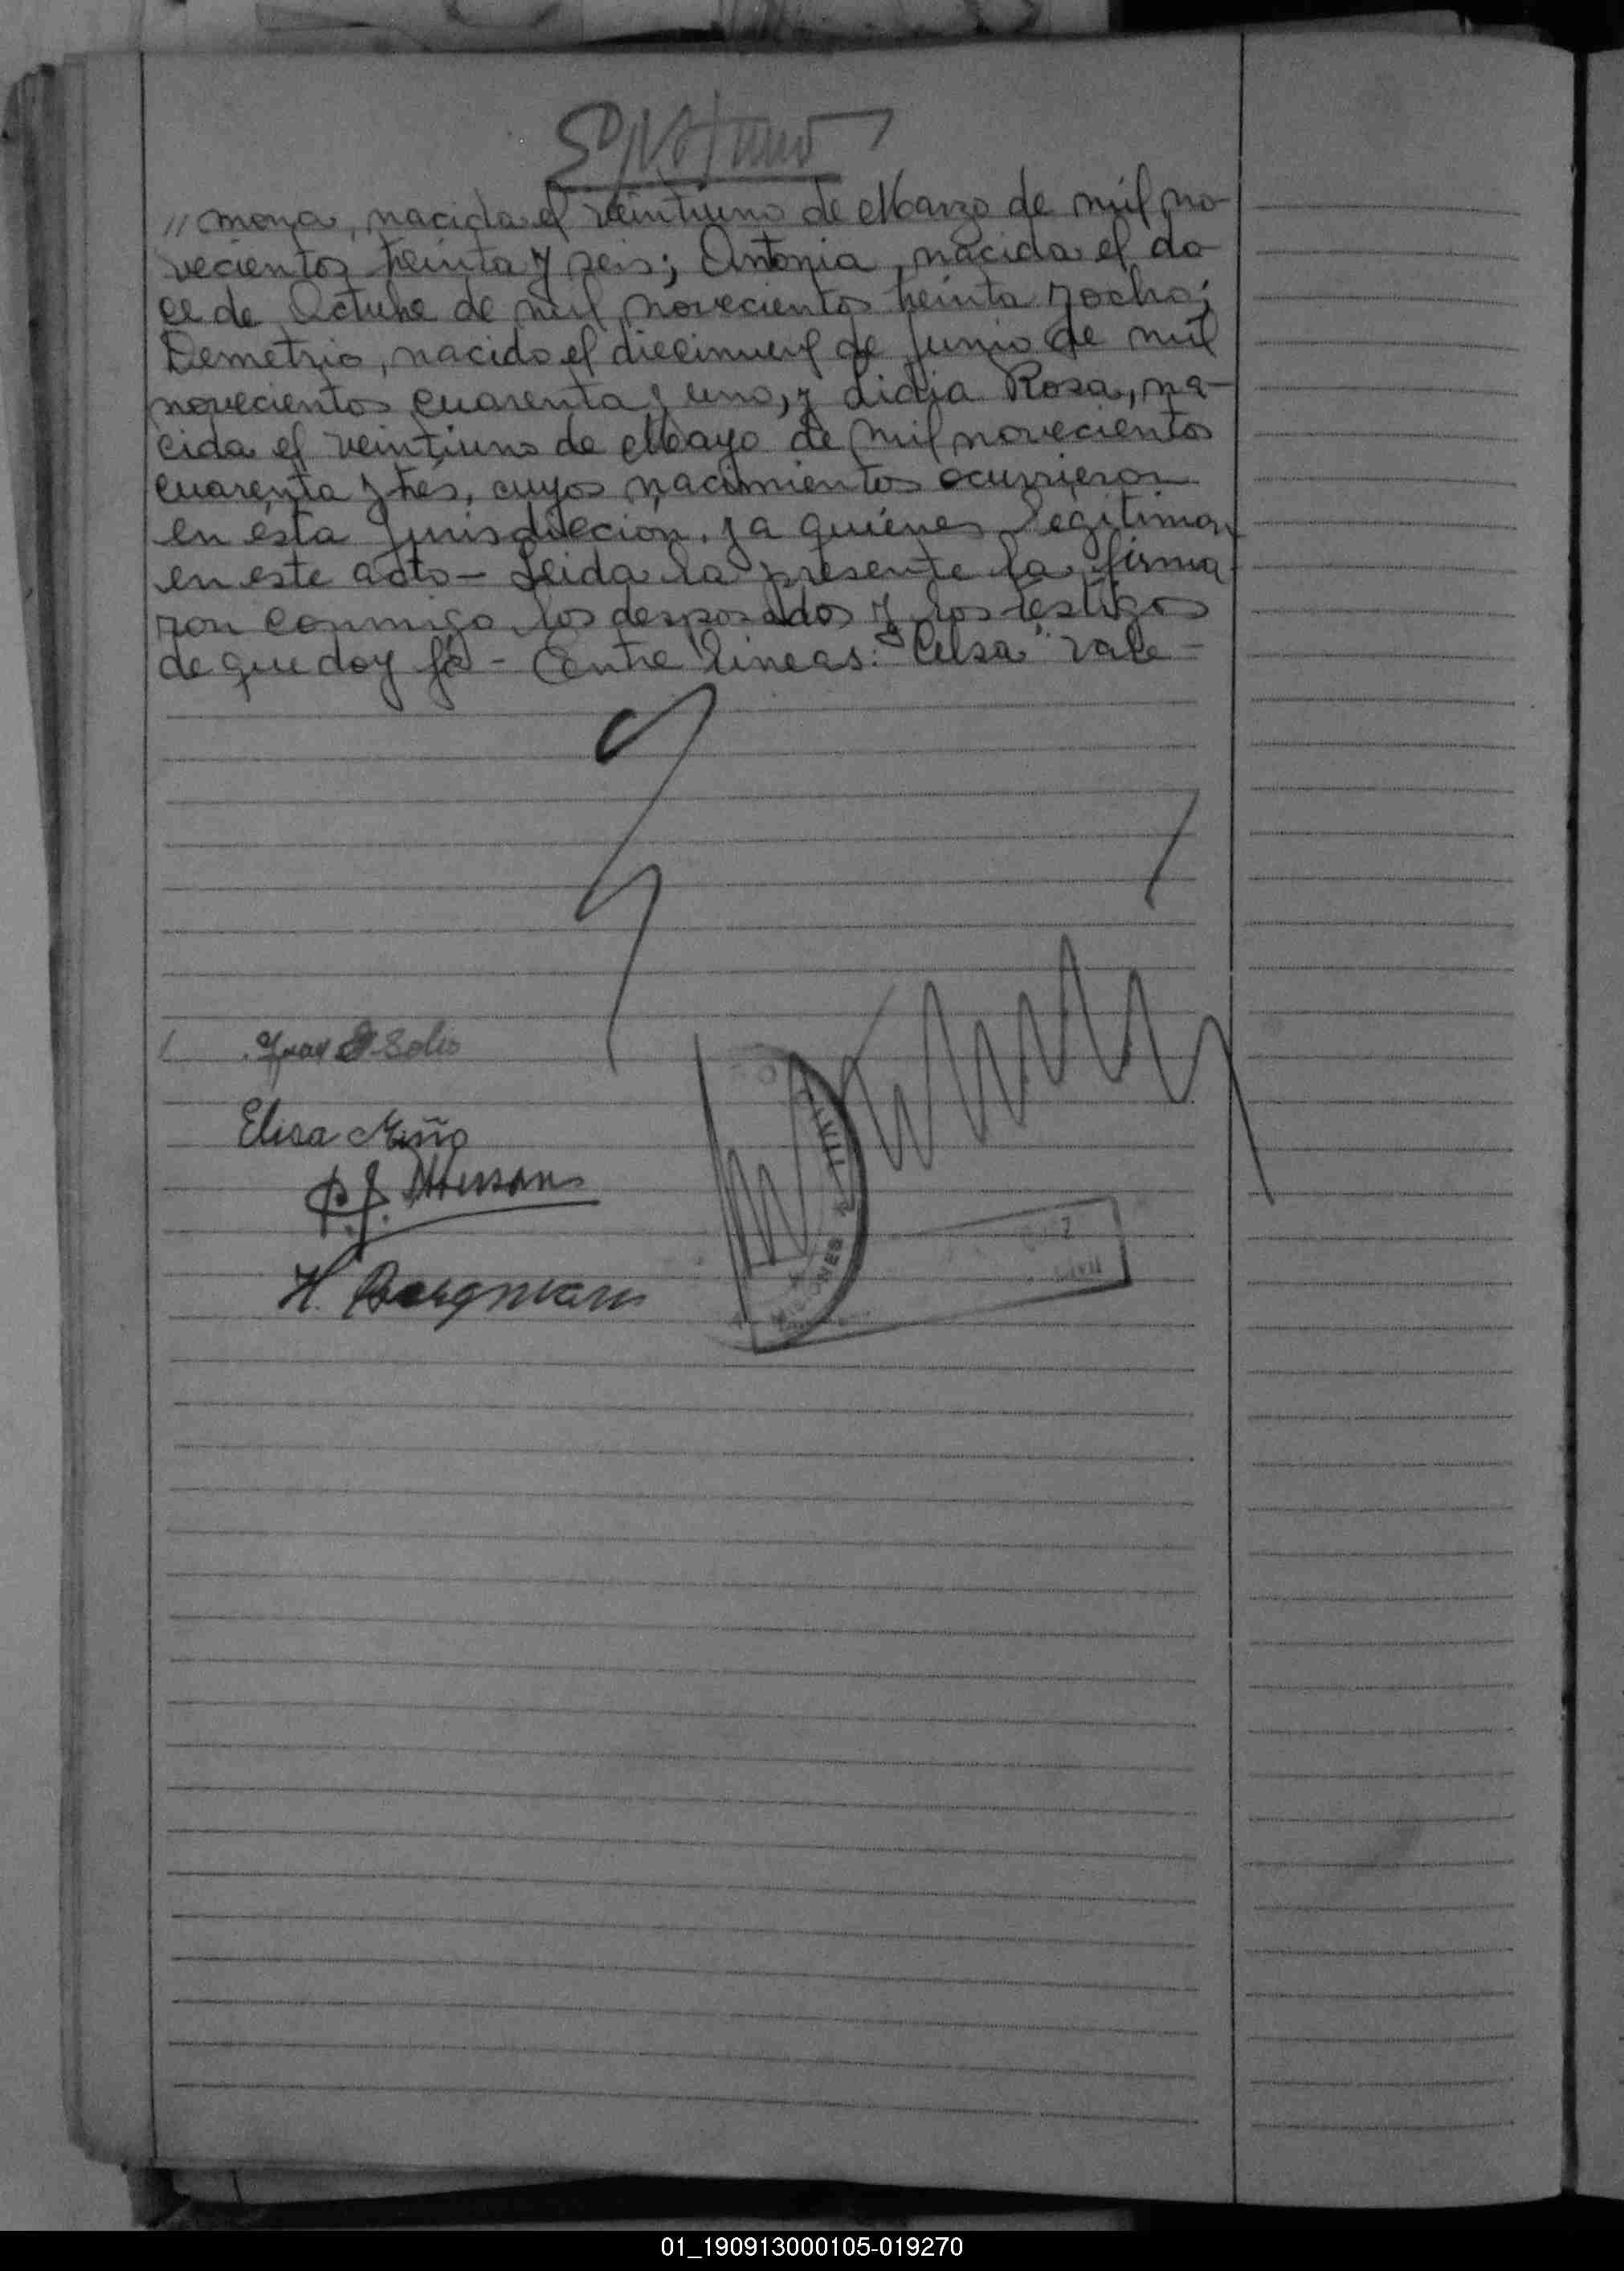 // mona, nacida el veintiuno de Marzo de mil no-
vecientos treinta y seis; Antonia, nacida el do-
ce de Octubre de mil novecientos treinta y ocho;
Demetrio, nacido el diecinueve de Junio de mil
novecientos cuarenta y uno, y Lidia Rosa, na-
cida el veintiuno de Mayo de mil novecientos
cuarenta y tres, cuyos nacimientos ocurrieron
en ésta jurisdicción, y a quiénes legitiman
en este acto - Leida la presente la firma-
ron conmigo los desposados y los testigos
de que doy fé - Entre lineas: "Celsa" vale -
Elisa Miño
H. Bergmann
MISIONES
Civil
01_190913000105-019270